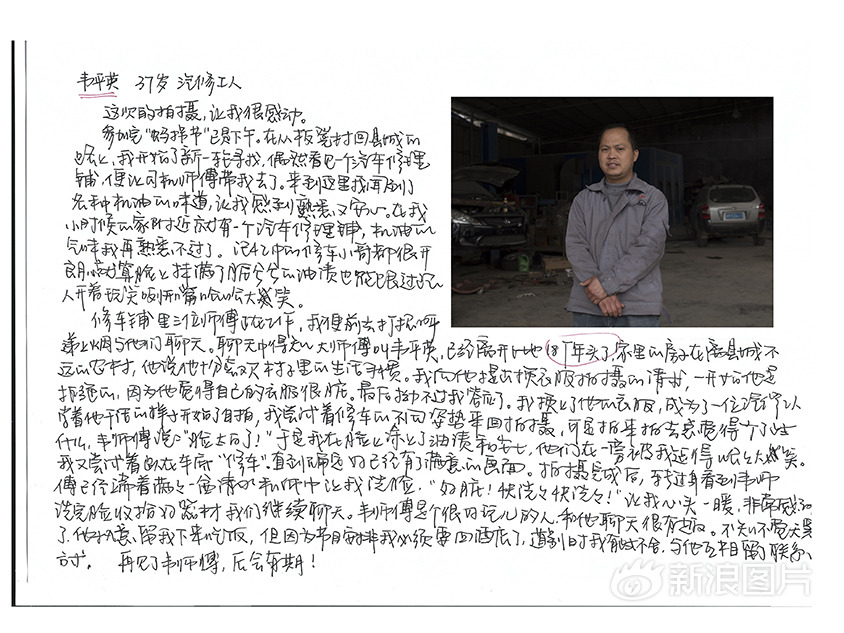 韦平英 37岁 汽修工人
这次的拍摄,让我很感动。
参加完"妈拐节"已是下午。在从板瓮村回县城的
路上,我开始了新一轮寻找,偶然看见一个汽车修理
铺,便让司机师傅带我去了。来到这里我闻到了
各种机油的味道,让我感到熟悉又安心。在我
小时候的家附近就有一个汽车修理铺,机油的
气味我再熟悉不过了。记忆中的修车小哥都很开
朗,就算脸上挂满了脏兮兮的油渍也能跟过路
人开着玩笑咧开嘴哈哈大笑。
修车铺里三位师傅正在工作,我便前去打招呼
递上烟与他们聊天。聊天中得知大师傅叫韦平英,已经离开 18个年头了,家里的房子在离县城不
远的农村,他说他十分喜欢村子里的生活习惯。我向他提出换衣服拍摄的请求,一开始他是
拒绝的,因为他觉得自己的衣服很脏。最后拗不过我答应了。我换上了他的衣服,成为了一位汽修工人
学着他干活的样子开始了自拍,我尝试着修车的不同姿势来回拍摄,可是拍来拍去总觉得少了些
什么,韦师傅说:"脸太白了!"于是我在脸上涂上了油渍和灰土,他们在一旁被我逗得哈哈大笑。
我又尝试着卧在车底"修车"直到确定已经有了满意的画面。拍摄完成后,转过身看到韦师
傅已经端着满满一盆清水 让我洗脸,"好脏!快洗洗快洗洗!"让我心头一暖,非常感动
洗完脸收拾好器材我们继续聊天。韦师傅是个很好玩儿的人,和他聊天很有趣。不知不觉天黑
了,他执意留我下来吃饭,但因为节目安排我必须要回酒店了,道别时我有些不舍,与他互相留了联系方
式。 再见了韦师傅,后会有期!
新浪图片